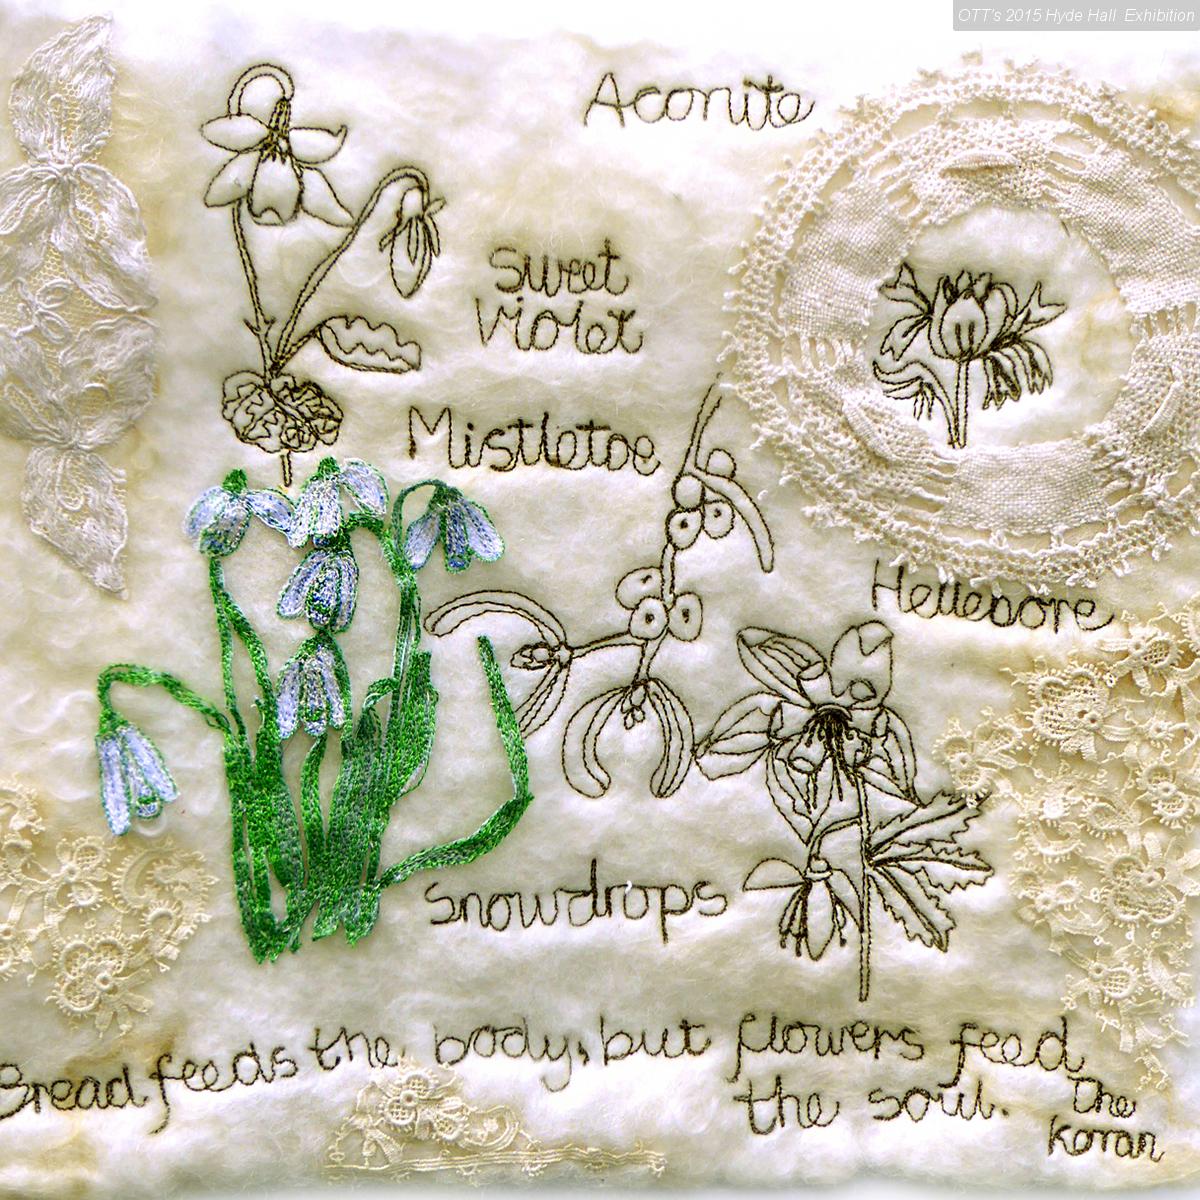 OTT's 2015 Hyde Hall Exhibition
Aconite
Sweet
Violet
Mistletoe
Hellebore
Snowdrops
Bread feeds the body, but flowers feed
the soul.
The
Koran